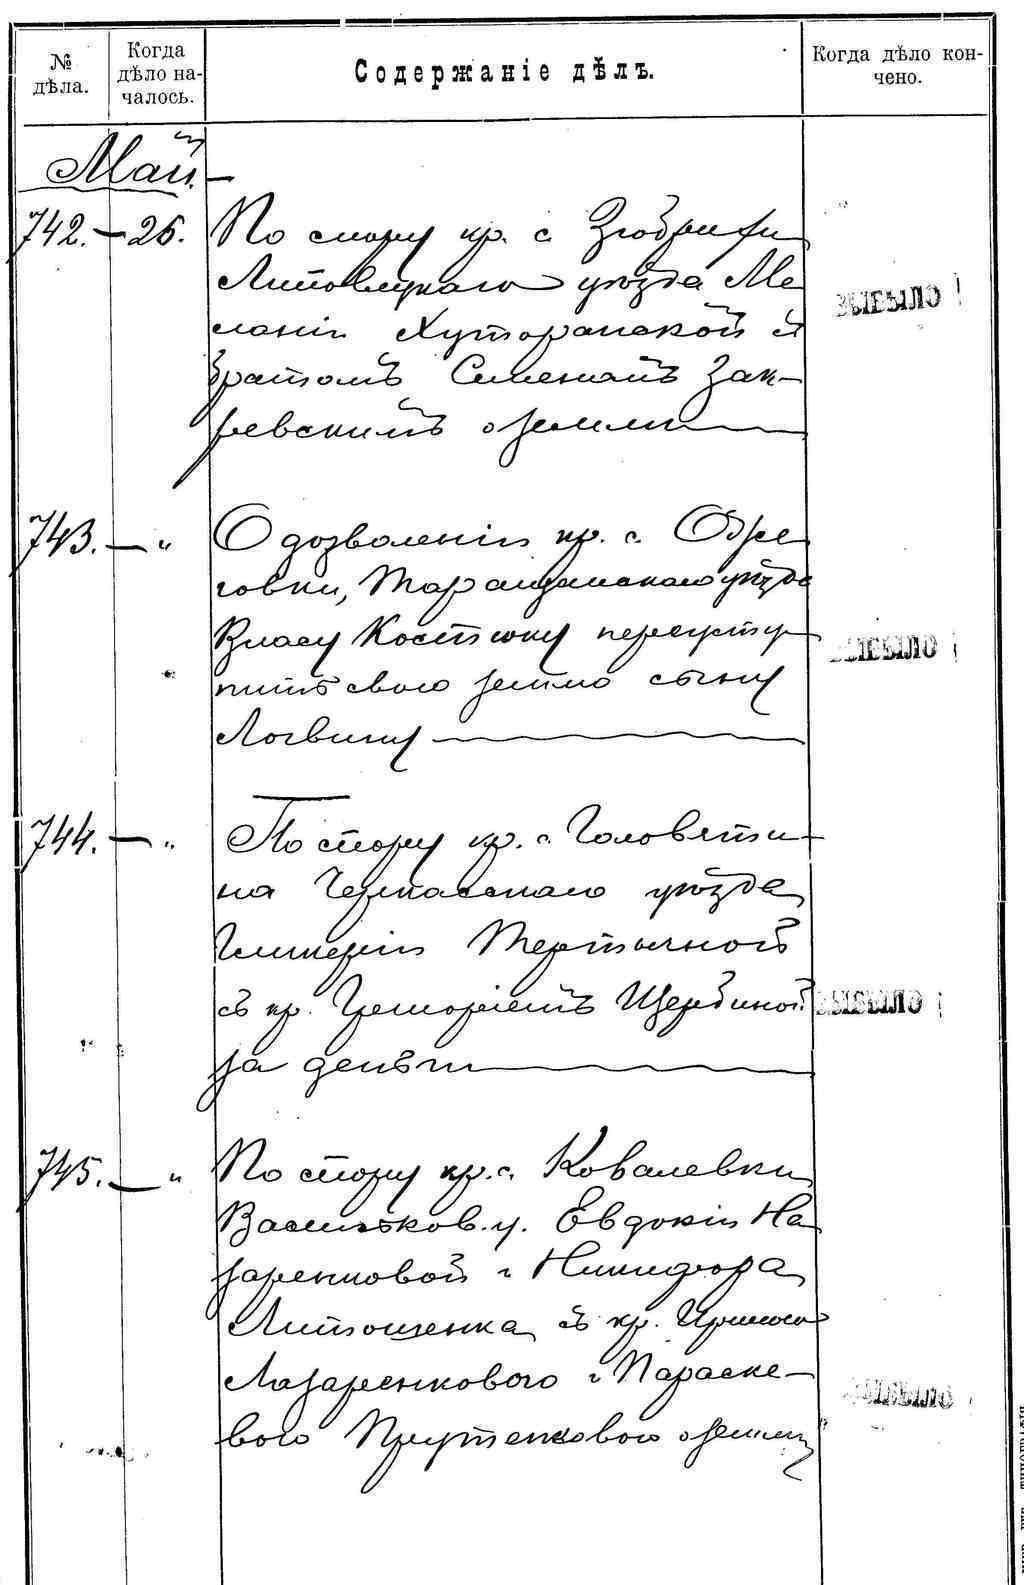 № дѣла.
Когда дѣло на-
чалось.
Содержаніе дѣлъ.
Когда дѣло кон-
чено.
Май.
742. — 26. По спору кр. с.
Липовецкаго уѣзда Ме
ланіи Хуторанской съ
братомъ Семеномъ Зак-
ревскимъ о земли
ВЫБЫЛО
743. — " О дозволеніи кр. с.
говки, Таращанскаго уѣзда
Власу Костюку переусту
пить свою землю сыну
Логвину
ВЫБЫЛО
744. — " По спору кр. с. Головяти-
на Черкасскаго уѣзда
Гликеріи Тертычной
съ кр. Григоріемъ Щербиной
за деньги
ВЫБЫЛО
745. — " По спору кр. с. Ковалевки
Васильков. у. Евдокіи На
заренковой и Никифора
Литошенка съ кр.
Лазаренкового и Параске-
вою о земли
ВЫБЫЛО